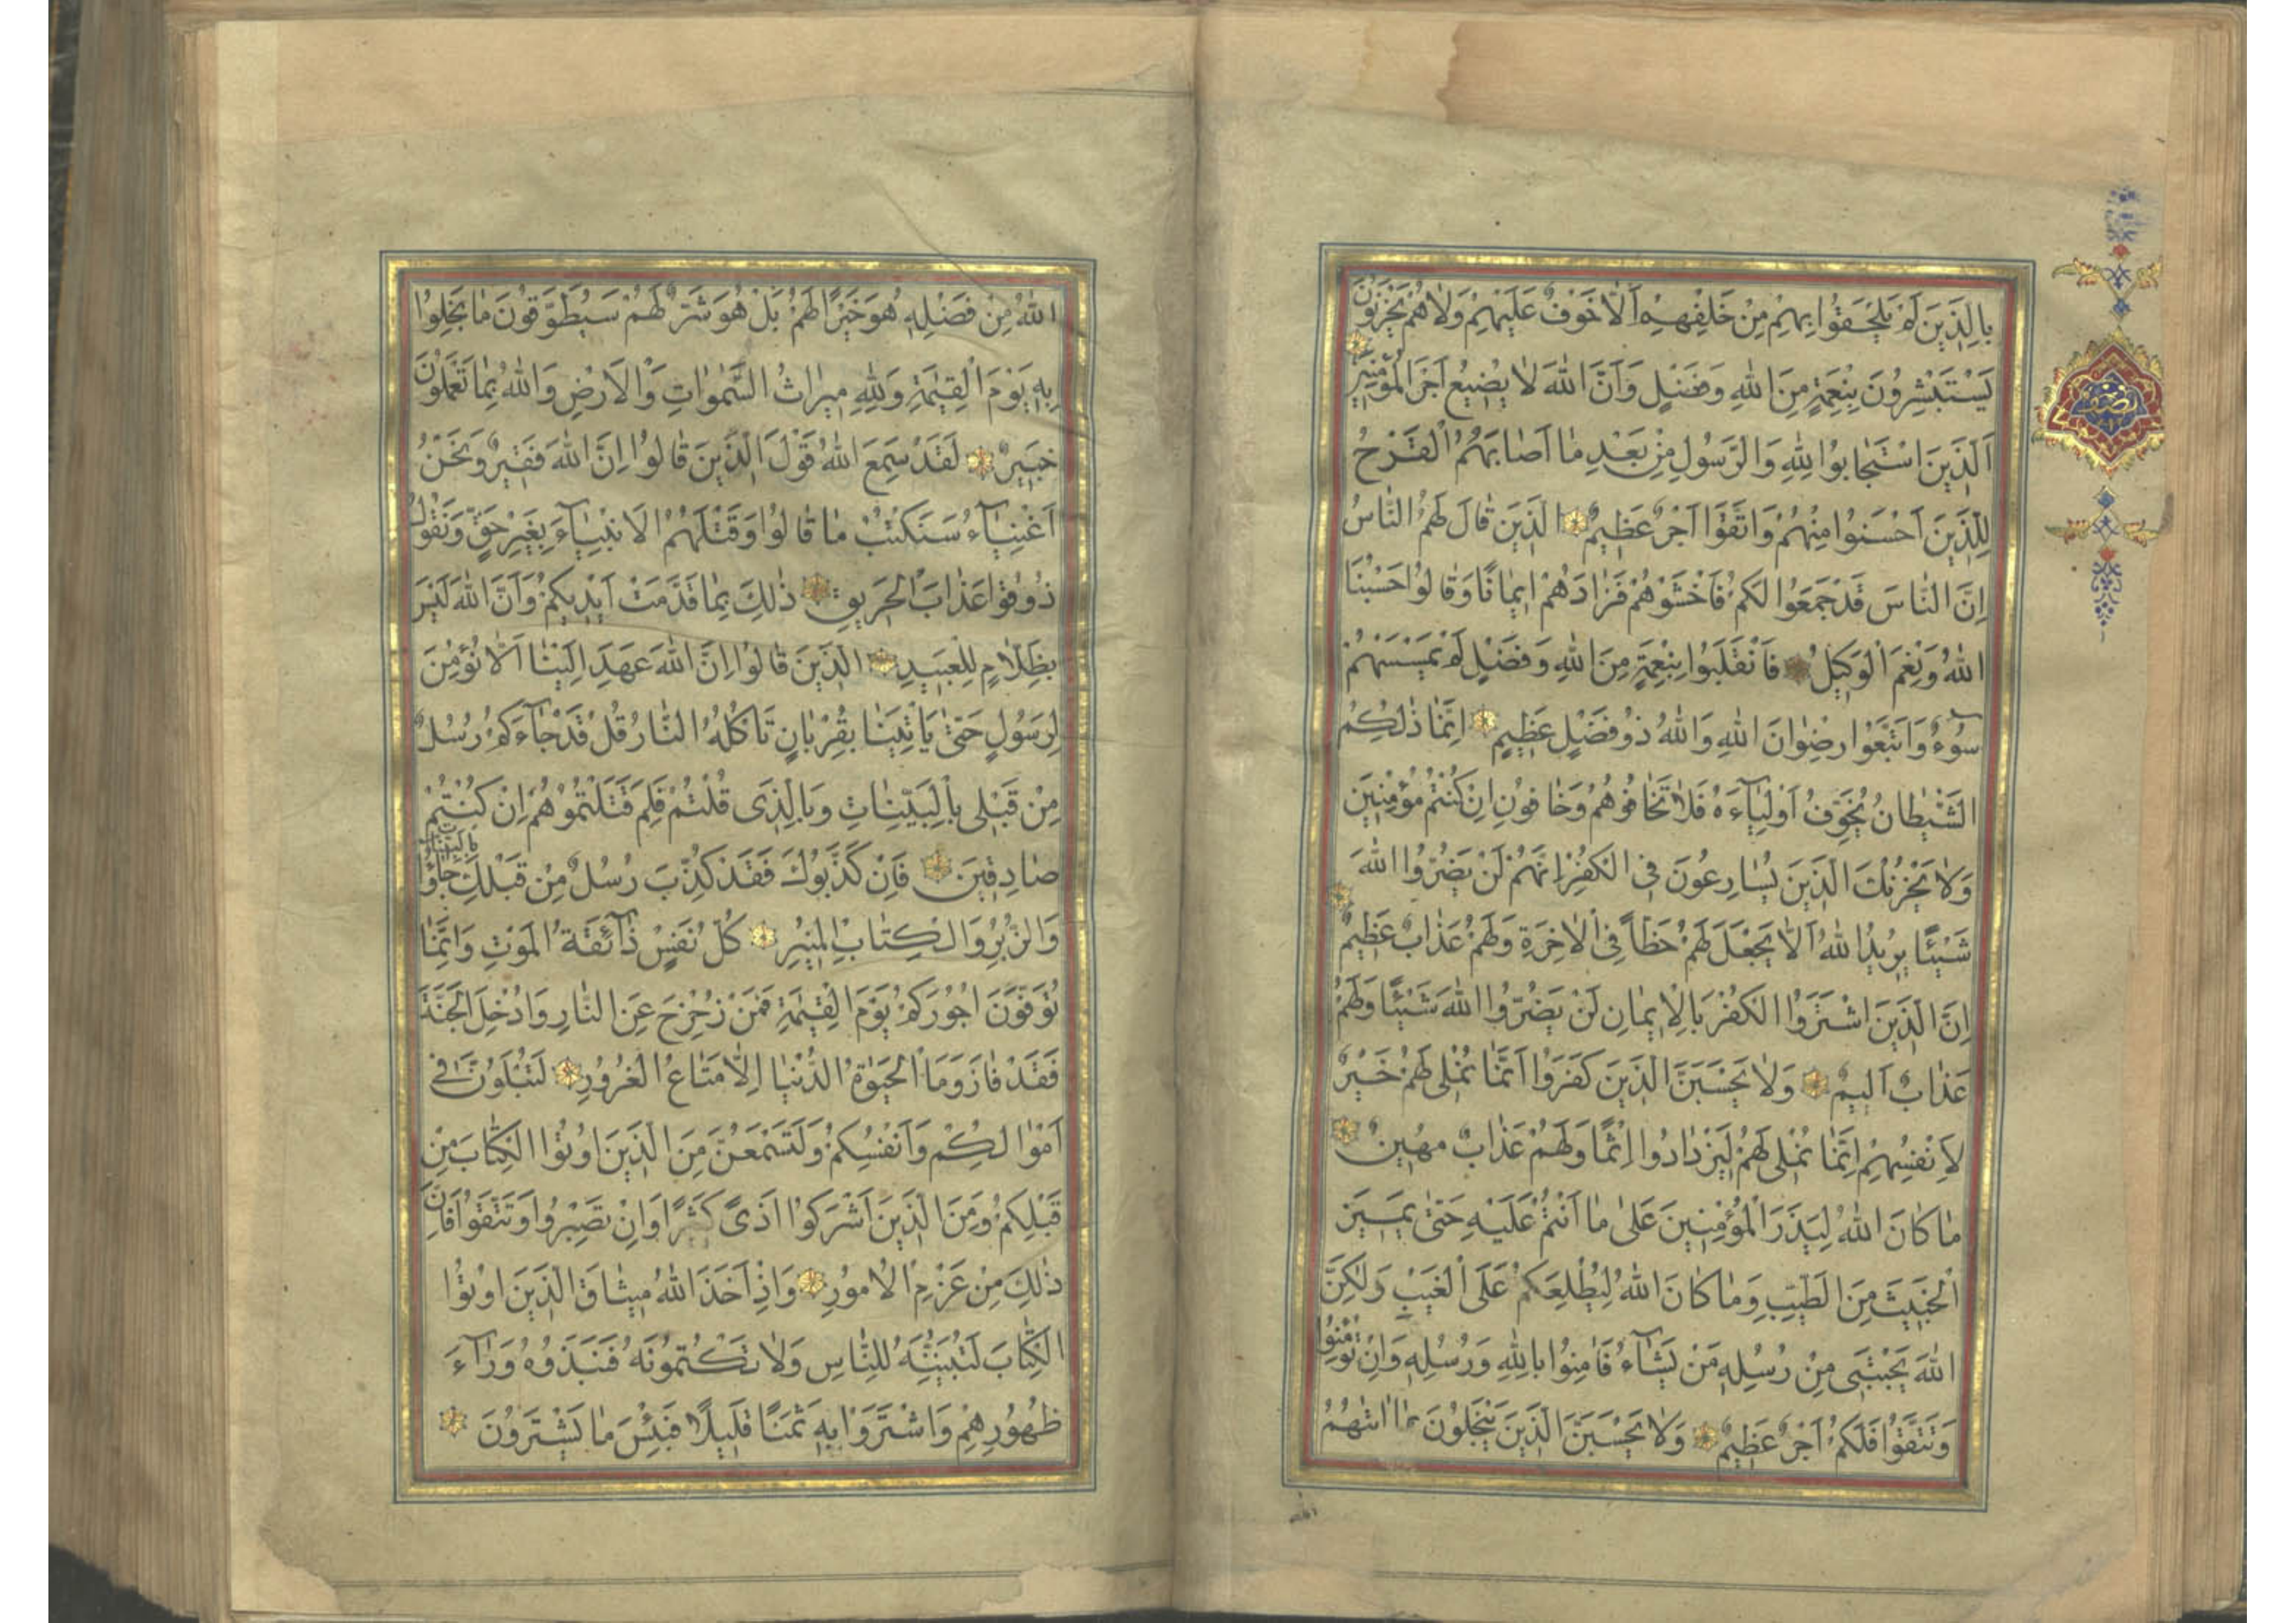 بِالَّذِينَ لَمْ يَلْحَقُوا بِهِمْ مِنْ خَلْفِهِمْ اَلَّا خَوْفٌ عَلَيْهِمْ وَلَا هُمْ يَحْزَنُونَ
يَسْتَبْشِرُونَ بِنِعْمَةٍ مِنَ اللهِ وَفَضْلٍ وَاَنَّ اللهَ لَا يُضِيعُ اَجْرَ الْمُؤْمِنِينَ
اَلَّذِينَ اسْتَجَابُوا لِلّهِ وَالرَّسُولِ مِنْ بَعْدِ مَا اَصَابَهُمُ الْقَرْحُ
لِلَّذِينَ اَحْسَنُوا مِنْهُمْ وَاتَّقَوْا اَجْرٌ عَظِيمٌ الَّذِينَ قَالَ لَهُمُ النَّاسُ
اِنَّ النَّاسَ قَدْ جَمَعُوا لَكُمْ فَاخْشَوْهُمْ فَزَادَهُمْ اِيمَانًا وَقَالُوا حَسْبُنَا
اللهُ وَنِعْمَ الْوَكِيلُ فَانْقَلَبُوا بِنِعْمَةٍ مِنَ اللهِ وَفَضْلٍ لَمْ يَمْسَسْهُمْ
سُوۤءٌ وَاتَّبَعُوا رِضْوَانَ اللهِ وَاللهُ ذُو فَضْلٍ عَظِيمٍ اِنَّمَا ذٰلِكُمُ
الشَّيْطَانُ يُخَوِّفُ اَوْلِيَآءَهُ فَلَا تَخَافُوهُمْ وَخَافُونِ اِنْ كُنْتُمْ مُؤْمِنِينَ
وَلَا يَحْزُنْكَ الَّذِينَ يُسَارِعُونَ فِي الْكُفْرِ اِنَّهُمْ لَنْ يَضُرُّوا اللهَ
شَيْئًا يُرِيدُ اللهُ اَلَّا يَجْعَلَ لَهُمْ حَظًّا فِي الْاٰخِرَةِ وَلَهُمْ عَذَابٌ عَظِيمٌ
اِنَّ الَّذِينَ اشْتَرَوُا الْكُفْرَ بِالْاِيمَانِ لَنْ يَضُرُّوا اللهَ شَيْئًا وَلَهُمْ
عَذَابٌ اَلِيمٌ وَلَا يَحْسَبَنَّ الَّذِينَ كَفَرُوا اَنَّمَا نُمْلِي لَهُمْ خَيْرٌ
لِاَنْفُسِهِمْ اِنَّمَا نُمْلِي لَهُمْ لِيَزْدَادُوا اِثْمًا وَلَهُمْ عَذَابٌ مُهِينٌ
مَا كَانَ اللهُ لِيَذَرَ الْمُؤْمِنِينَ عَلٰى مَا اَنْتُمْ عَلَيْهِ حَتّٰى يَمِيزَ
الْخَبِيثَ مِنَ الطَّيِّبِ وَمَا كَانَ اللهُ لِيُطْلِعَكُمْ عَلَى الْغَيْبِ وَلٰكِنَّ
اللهَ يَجْتَبِي مِنْ رُسُلِهِ مَنْ يَشَآءُ فَاٰمِنُوا بِاللهِ وَرُسُلِهِ وَاِنْ تُؤْمِنُوا
وَتَتَّقُوا فَلَكُمْ اَجْرٌ عَظِيمٌ وَلَا يَحْسَبَنَّ الَّذِينَ يَبْخَلُونَ بِمَا اٰتٰيهُمُ
اللهُ مِنْ فَضْلِهِ هُوَ خَيْرًا لَهُمْ بَلْ هُوَ شَرٌّ لَهُمْ سَيُطَوَّقُونَ مَا بَخِلُوا
بِهِ يَوْمَ الْقِيٰمَةِ وَلِلّهِ مِيرَاثُ السَّمٰوَاتِ وَالْاَرْضِ وَاللهُ بِمَا تَعْمَلُونَ
خَبِيرٌ لَقَدْ سَمِعَ اللهُ قَوْلَ الَّذِينَ قَالُوا اِنَّ اللهَ فَقِيرٌ وَنَحْنُ
اَغْنِيَآءُ سَنَكْتُبُ مَا قَالُوا وَقَتْلَهُمُ الْاَنْبِيَآءَ بِغَيْرِ حَقٍّ وَنَقُولُ
ذُوقُوا عَذَابَ الْحَرِيقِ ذٰلِكَ بِمَا قَدَّمَتْ اَيْدِيكُمْ وَاَنَّ اللهَ لَيْسَ
بِظَلَّامٍ لِلْعَبِيدِ الَّذِينَ قَالُوا اِنَّ اللهَ عَهِدَ اِلَيْنَا اَلَّا نُؤْمِنَ
لِرَسُولٍ حَتّٰى يَاْتِيَنَا بِقُرْبَانٍ تَاْكُلُهُ النَّارُ قُلْ قَدْ جَآءَكُمْ رُسُلٌ
مِنْ قَبْلِي بِالْبَيِّنَاتِ وَبِالَّذِي قُلْتُمْ فَلِمَ قَتَلْتُمُوهُمْ اِنْ كُنْتُمْ
صَادِقِينَ فَاِنْ كَذَّبُوكَ فَقَدْ كُذِّبَ رُسُلٌ مِنْ قَبْلِكَ جَاؤُا بِالْبَيِّنَاتِ
وَالزُّبُرِ وَالْكِتَابِ الْمُنِيرِ كُلُّ نَفْسٍ ذَآئِقَةُ الْمَوْتِ وَاِنَّمَا
تُوَفَّوْنَ اُجُورَكُمْ يَوْمَ الْقِيٰمَةِ فَمَنْ زُحْزِحَ عَنِ النَّارِ وَاُدْخِلَ الْجَنَّةَ
فَقَدْ فَازَ وَمَا الْحَيٰوةُ الدُّنْيَا اِلَّا مَتَاعُ الْغُرُورِ لَتُبْلَوُنَّ فِي
اَمْوَالِكُمْ وَاَنْفُسِكُمْ وَلَتَسْمَعُنَّ مِنَ الَّذِينَ اُوتُوا الْكِتَابَ مِنْ
قَبْلِكُمْ وَمِنَ الَّذِينَ اَشْرَكُوا اَذًى كَثِيرًا وَاِنْ تَصْبِرُوا وَتَتَّقُوا فَاِنَّ
ذٰلِكَ مِنْ عَزْمِ الْاُمُورِ وَاِذْ اَخَذَ اللهُ مِيثَاقَ الَّذِينَ اُوتُوا
الْكِتَابَ لَتُبَيِّنُنَّهُ لِلنَّاسِ وَلَا تَكْتُمُونَهُ فَنَبَذُوهُ وَرَآءَ
ظُهُورِهِمْ وَاشْتَرَوْا بِهِ ثَمَنًا قَلِيلًا فَبِئْسَ مَا يَشْتَرُونَ